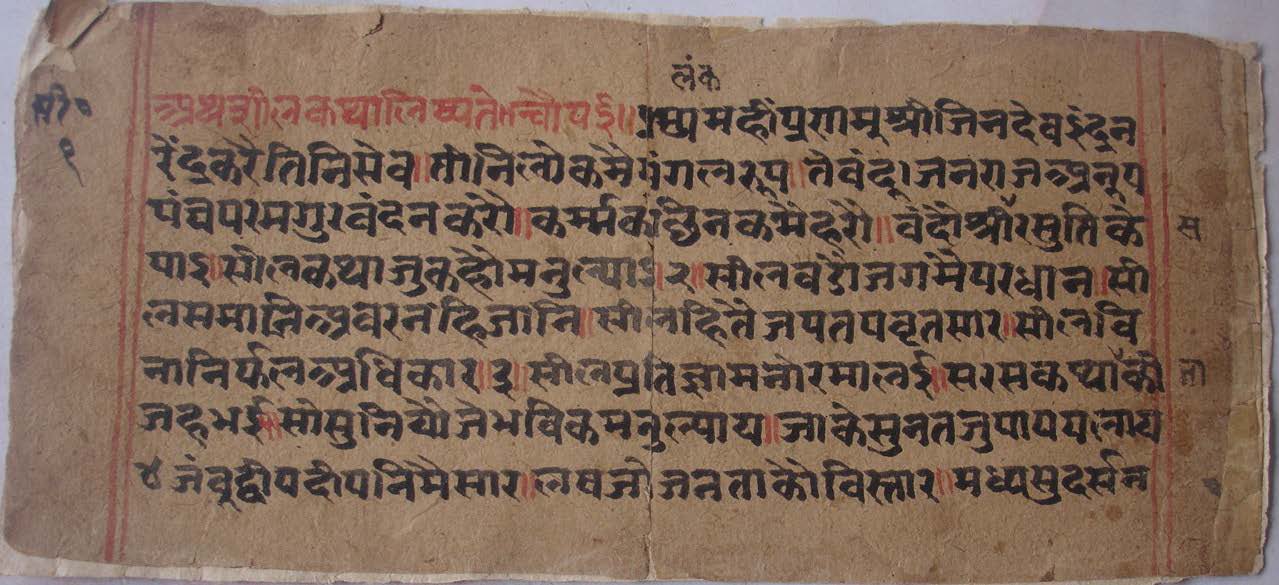 लंक
अथ शीलकथा लिष्यते चौपई॥ प्रथमहीं प्रणमु श्रीजिनदेव इंद्र न
रेंद्र करै तिनि सेव॥ तीनि लोक मै मंगल रूप॥ ते वंदू जनराज अनुप
पंचपरमगुर वंदन करो॥ कर्म्मक कमै हरो॥ वंदो श्री रसुति के
पाइ॥ सीलकथा जु कहौ मनु ल्याइ २॥ सील वडो जग मै परधान॥ सी
ल समानि अवर नहि जानि॥ सीलहि तै जप तप वृत सार॥ सील वि
ना निर्फल अधिकार॥३॥ सील प्रतिज्ञा मनोरमा लई॥ सरस कथा की
जह भई॥ सो सुनियो जे भविक मनु ल्याय॥ जाके सुनत जु पाप पलाय
४ जंबुद्वीप दीपनि मै सार॥ लष जोजन ताको विस्तार॥ मध्य सुदर्सन